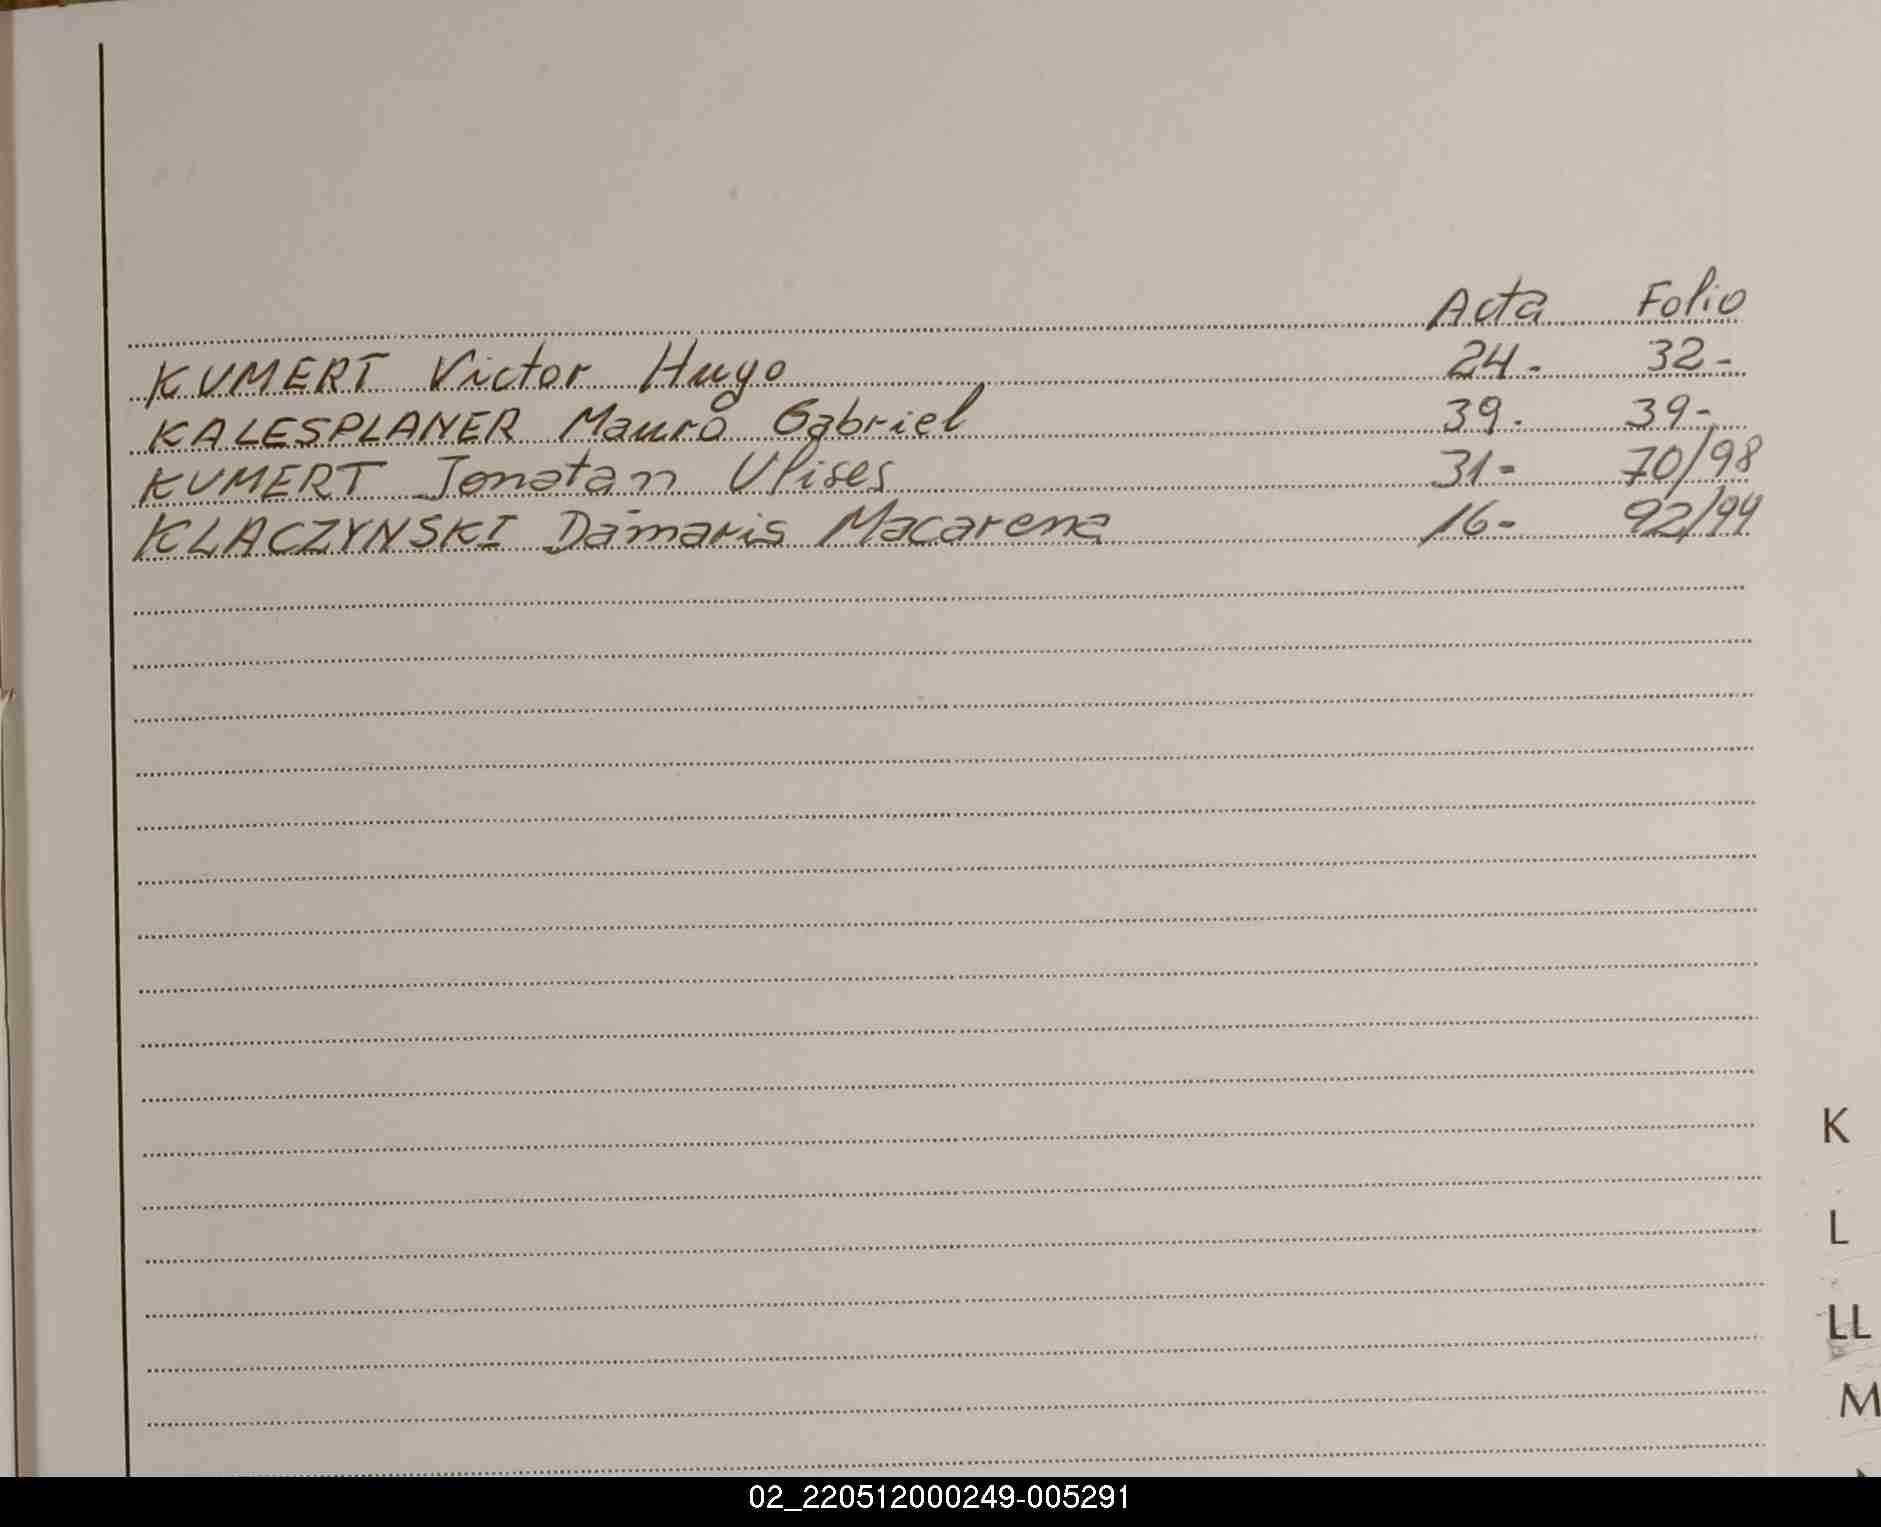 Acta Folio
KUMERT Victor Hugo 24- 32-
KALESPLANER Mauro Gabriel 39- 39-
KUMERT Jonatan Ulises 31- 70/98
KLACZYNSKI Dámaris Macarena 16- 92/99
K
L
LL
M
02_220512000249-005291